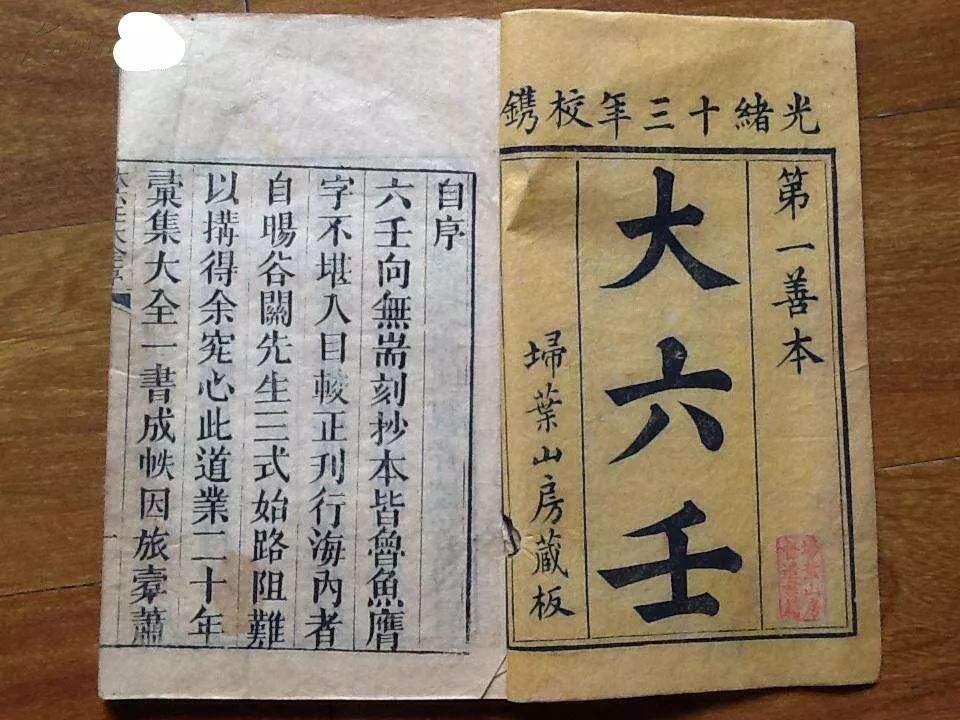 光緒十三年校鐫
第一善本
大六壬
埽葉山房藏板
自序
六壬向無耑刻抄本皆魯魚膺
字不堪入目較正刊行海內者
自暘谷關先生三式始路阻難
以搆得余究心此道業二十年
彚集大全一書成帙因旅橐蕭